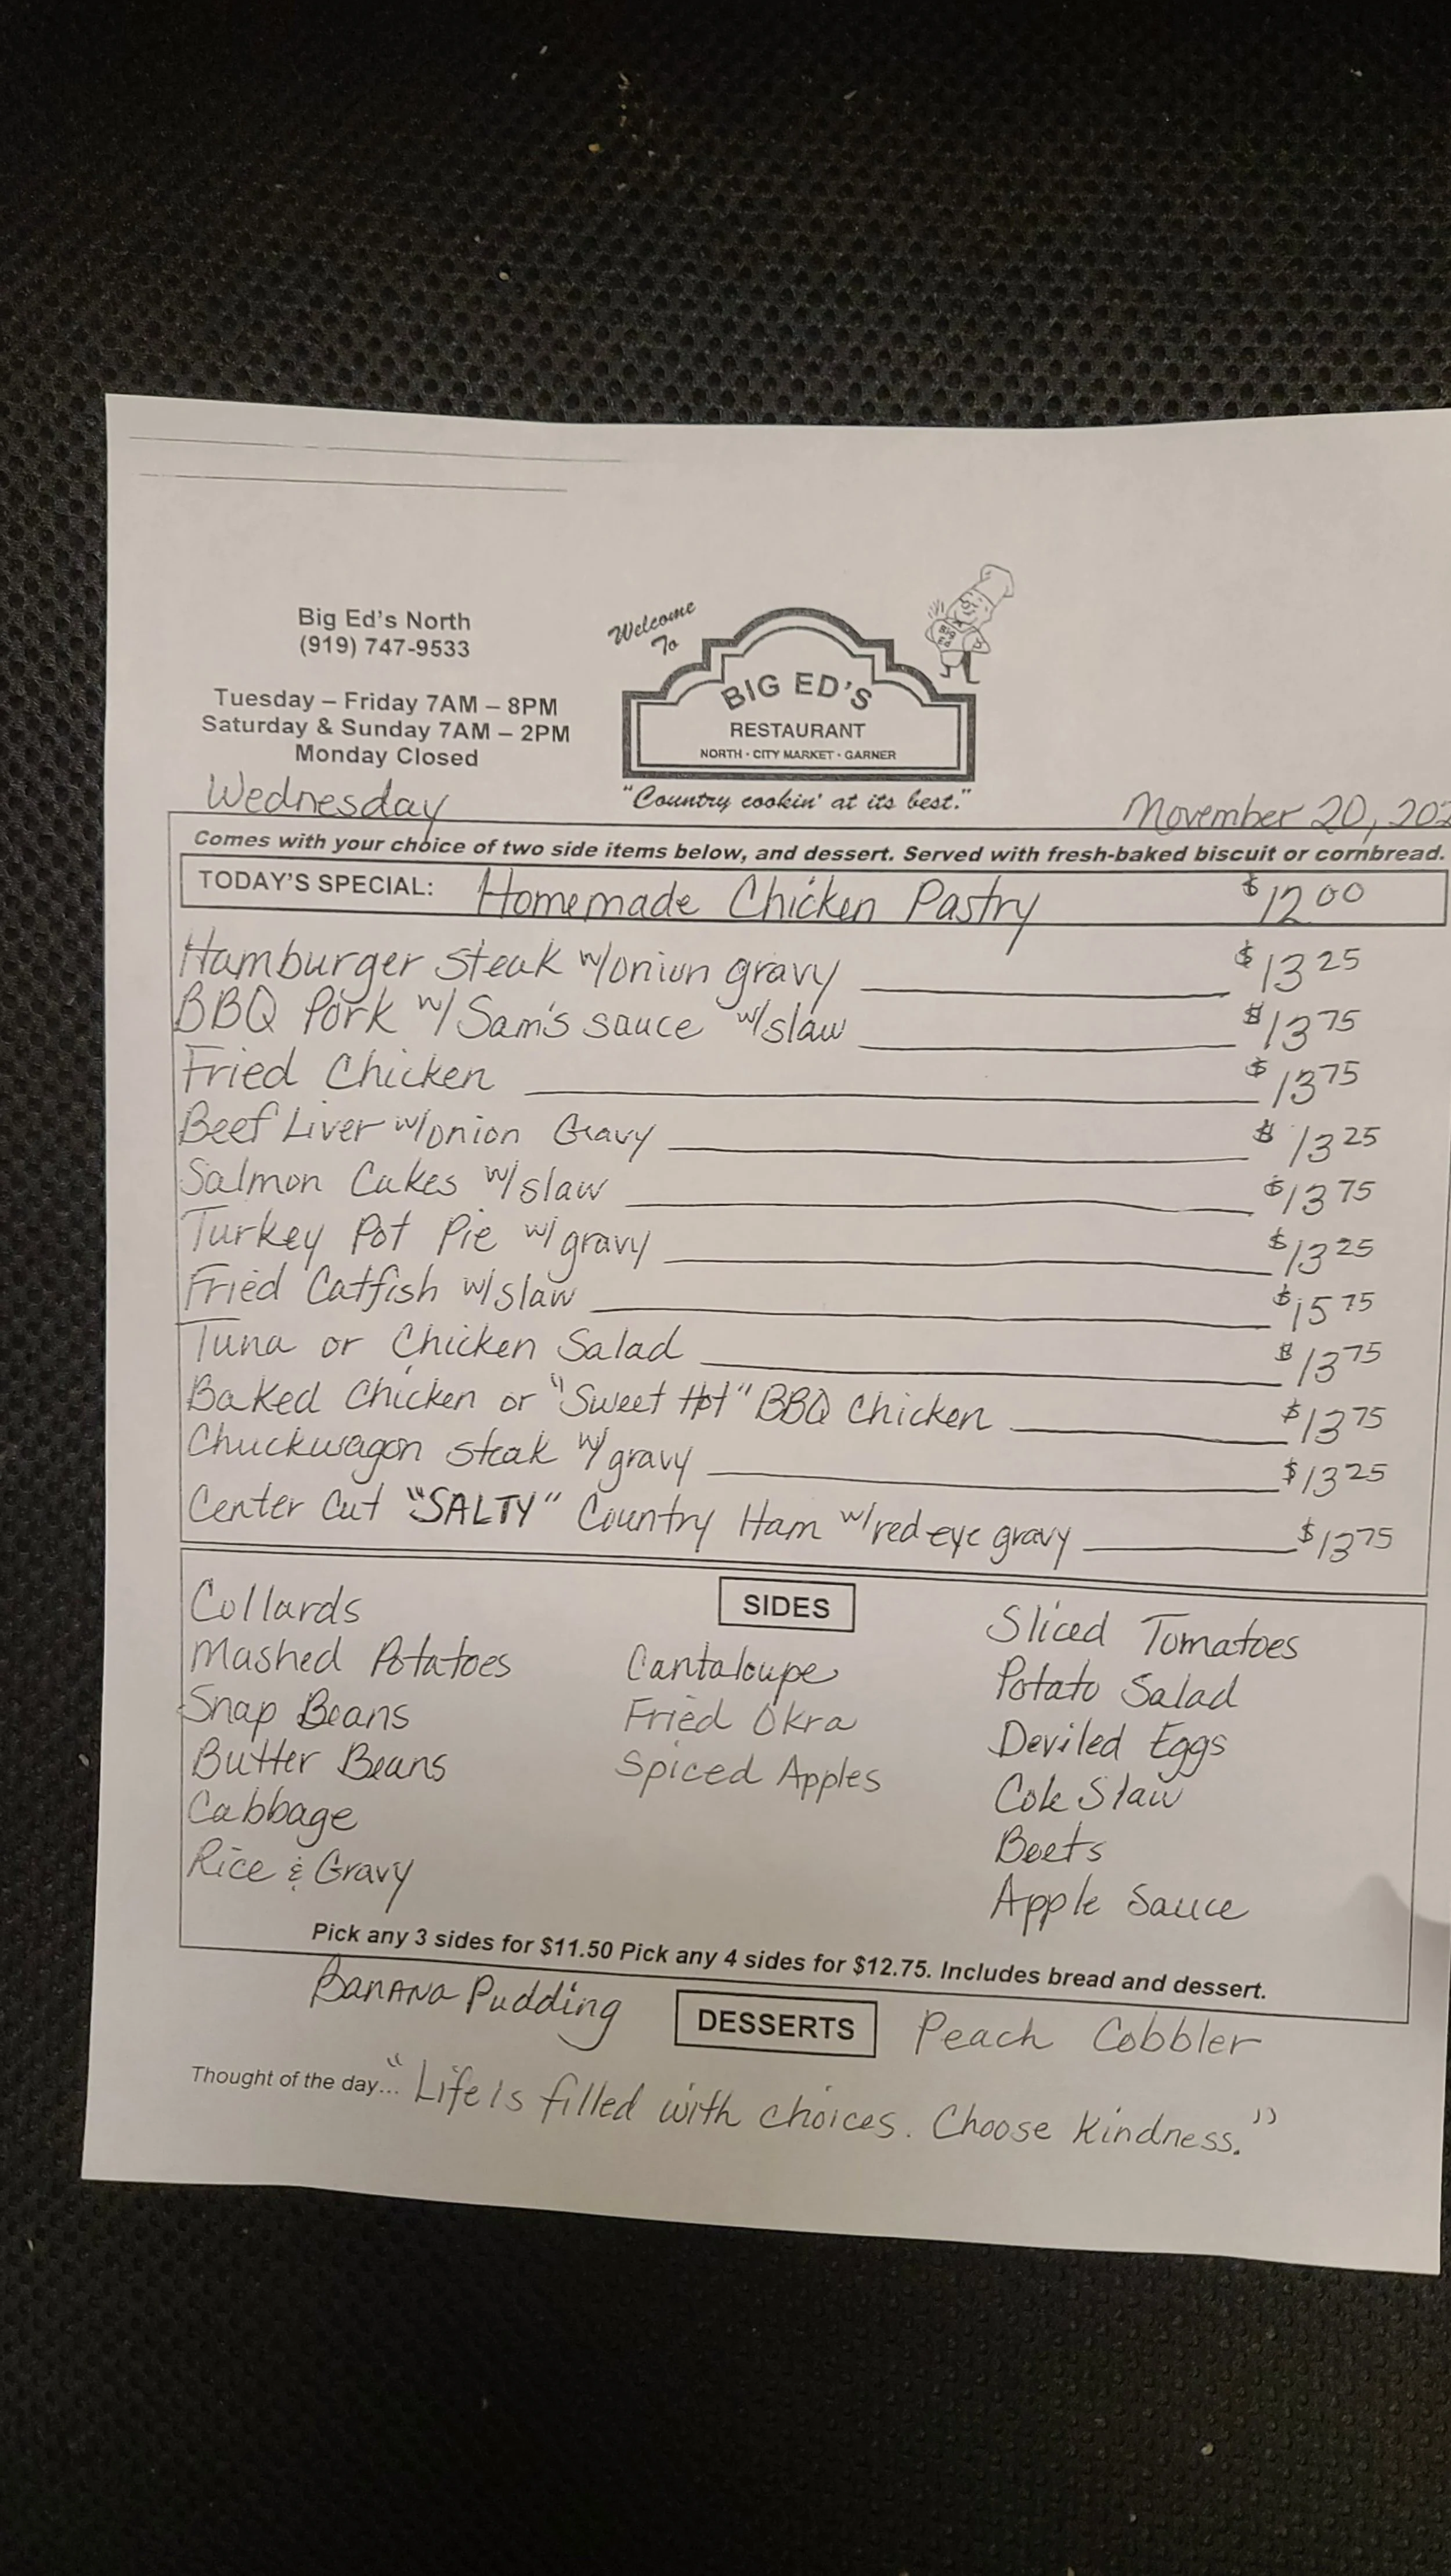 Big Ed's North
(919) 747-9533
Tuesday – Friday 7AM – 8PM
Saturday & Sunday 7AM – 2PM
Monday Closed
Welcome
To
BIG ED'S
RESTAURANT
NORTH · CITY MARKET · GARNER
"Country cookin' at its best."
Wednesday
November 20, 202
Comes with your choice of two side items below, and dessert. Served with fresh-baked biscuit or cornbread.
TODAY'S SPECIAL: Homemade Chicken Pastry $12 00
Hamburger steak w/onion gravy $13 25
BBQ Pork w/ Sam's sauce w/slaw $13 75
Fried Chicken $13 75
Beef Liver w/onion Gravy $13 25
Salmon Cakes w/slaw $13 75
Turkey Pot Pie w/ gravy $13 25
Fried Catfish w/slaw $15 75
Tuna or Chicken Salad $13 75
Baked Chicken or "Sweet Hot" BBQ Chicken $13 75
Chuckwagon steak w/ gravy $13 25
Center Cut "SALTY" Country Ham w/red eye gravy $13 75
SIDES
Collards
Mashed Potatoes
Snap Beans
Butter Beans
Cabbage
Rice & Gravy
Cantaloupe
Fried Okra
Spiced Apples
Sliced Tomatoes
Potato Salad
Deviled Eggs
Cole Slaw
Beets
Apple Sauce
Pick any 3 sides for $11.50 Pick any 4 sides for $12.75. Includes bread and dessert.
Banana Pudding DESSERTS Peach Cobbler
Thought of the day... "Life is filled with choices. Choose Kindness."